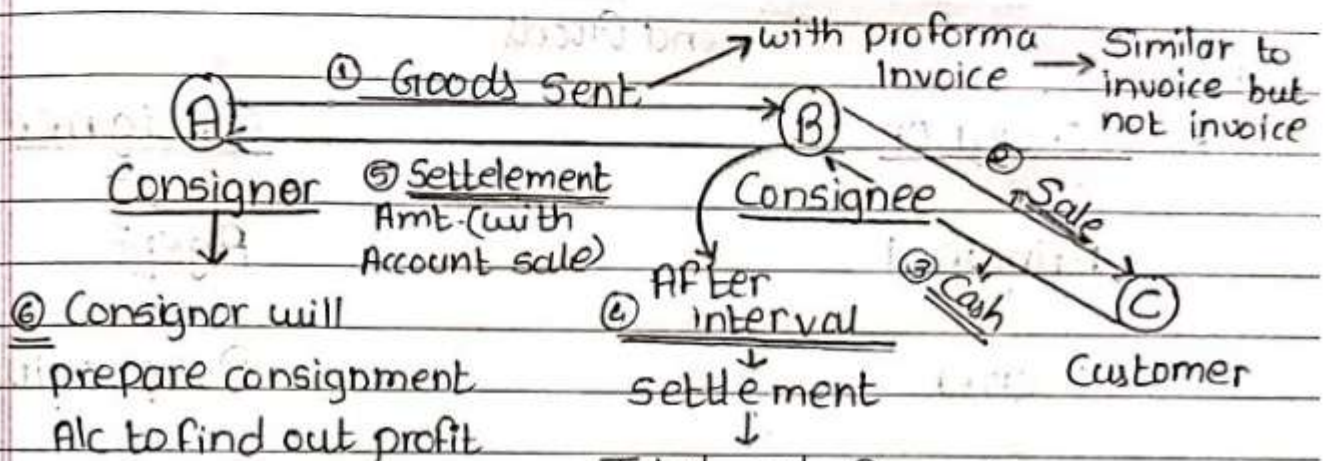 with proforma
Invoice
Similar to
invoice but
not invoice
① Goods Sent
A
B
Consignor
⑤ Settelement
Amt. (with
Account sale)
Consignee
② Sale
③ Cash
C
Customer
After
④ interval
settlement
⑥ Consignor will
prepare consignment
A/c to find out profit